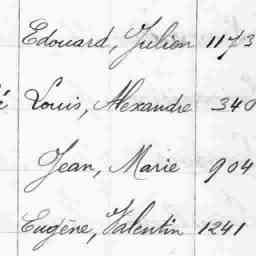 Edouard, Julien 1173
é Louis, Alexandre 340
Jean, Marie 904
Eugène, Valentin 1241